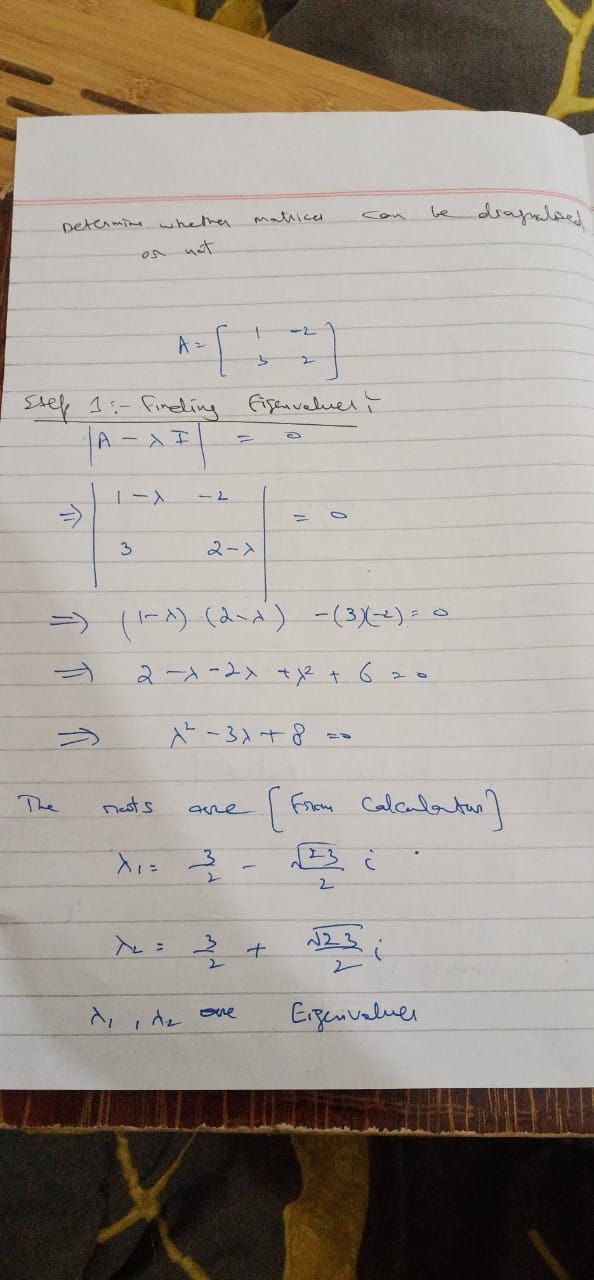 Determine whether matrices can be diagnalised
or not
A = [ 1 -2
3 2 ]
Step 1 :- Finding Eigenvalues :-
|A - λI| = 0
⇒ | 1-λ -2
3 2-λ | = 0
⇒ (1-λ) (2-λ) - (3)(-2) = 0
⇒ 2 - λ - 2λ + λ² + 6 = 0
⇒ λ² - 3λ + 8 = 0
The roots are [From Calculator]
λ₁ = 3/2 - √23/2 i
λ₂ = 3/2 + √23/2 i
λ₁, λ₂ are Eigenvalues